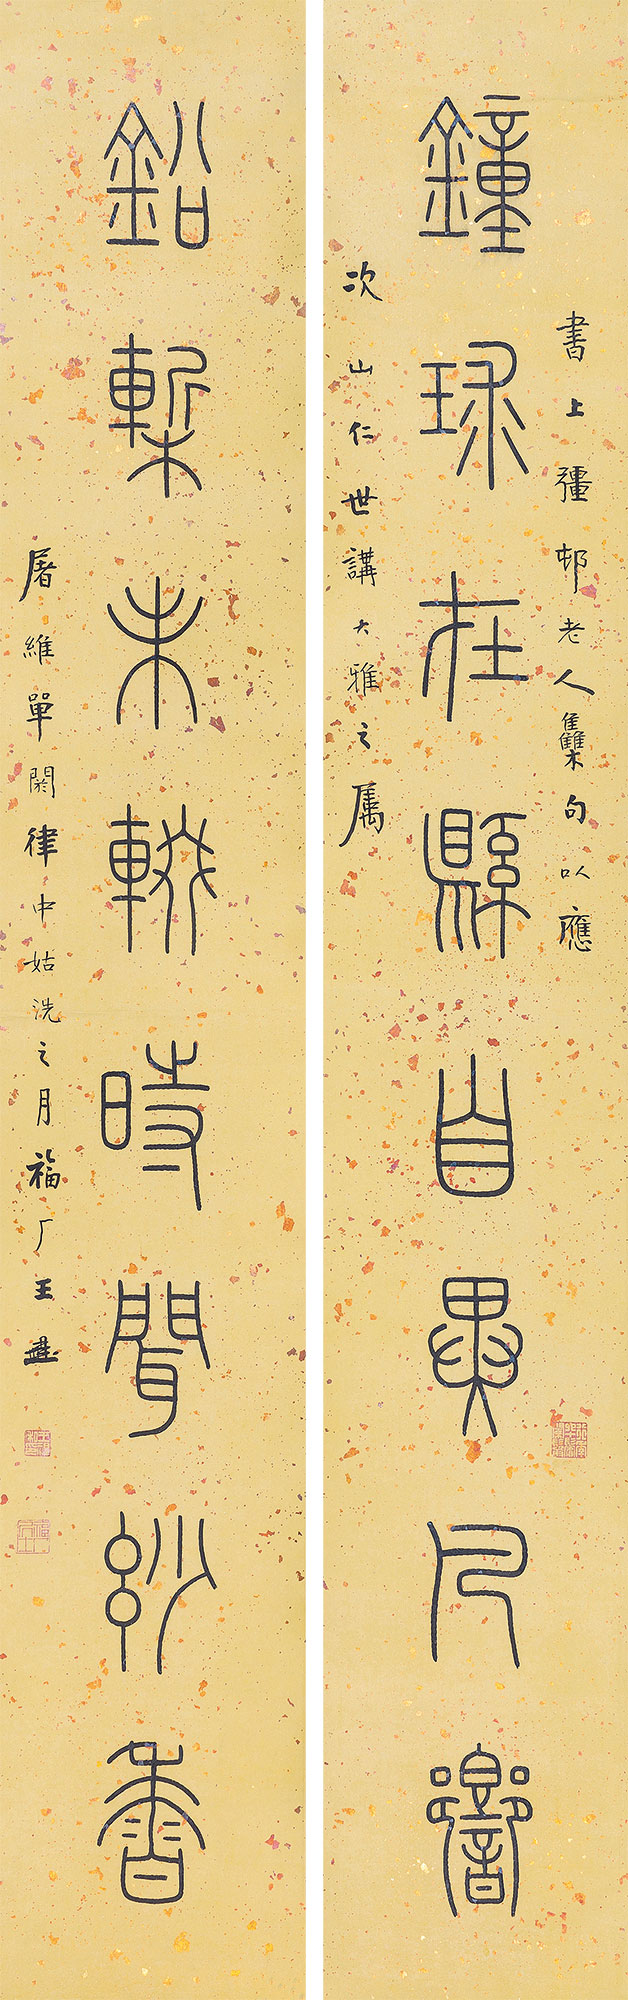 鐘球在縣自異凡響
書上彊邨老人雧句以應
次山仁世講大雅之属
鉛槧未輟時聞玅香
屠維單閼律中姑洗之月福厂王禔